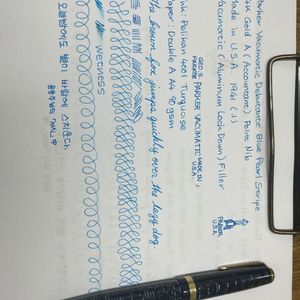 Parker Vacumatic Debutante Blue Pearl Stripe
14K Gold Ac(Accountant) Point Nib
Made in U.S.A 1941 (.1)
Vacumatic (Aluminum Lock Down) Filler
PARKER
U.S.A
GEO.S. PARKER VACUMATIC MADE IN U.S.A.
Ink: Pelikan 4001 Turquoise
Paper: Double A A4 90gsm
The brown fox jumps quickly over the lazy dog.
wetness
오늘밤에도 별이 바람에 스치운다
윤동주님의 「서시」 中